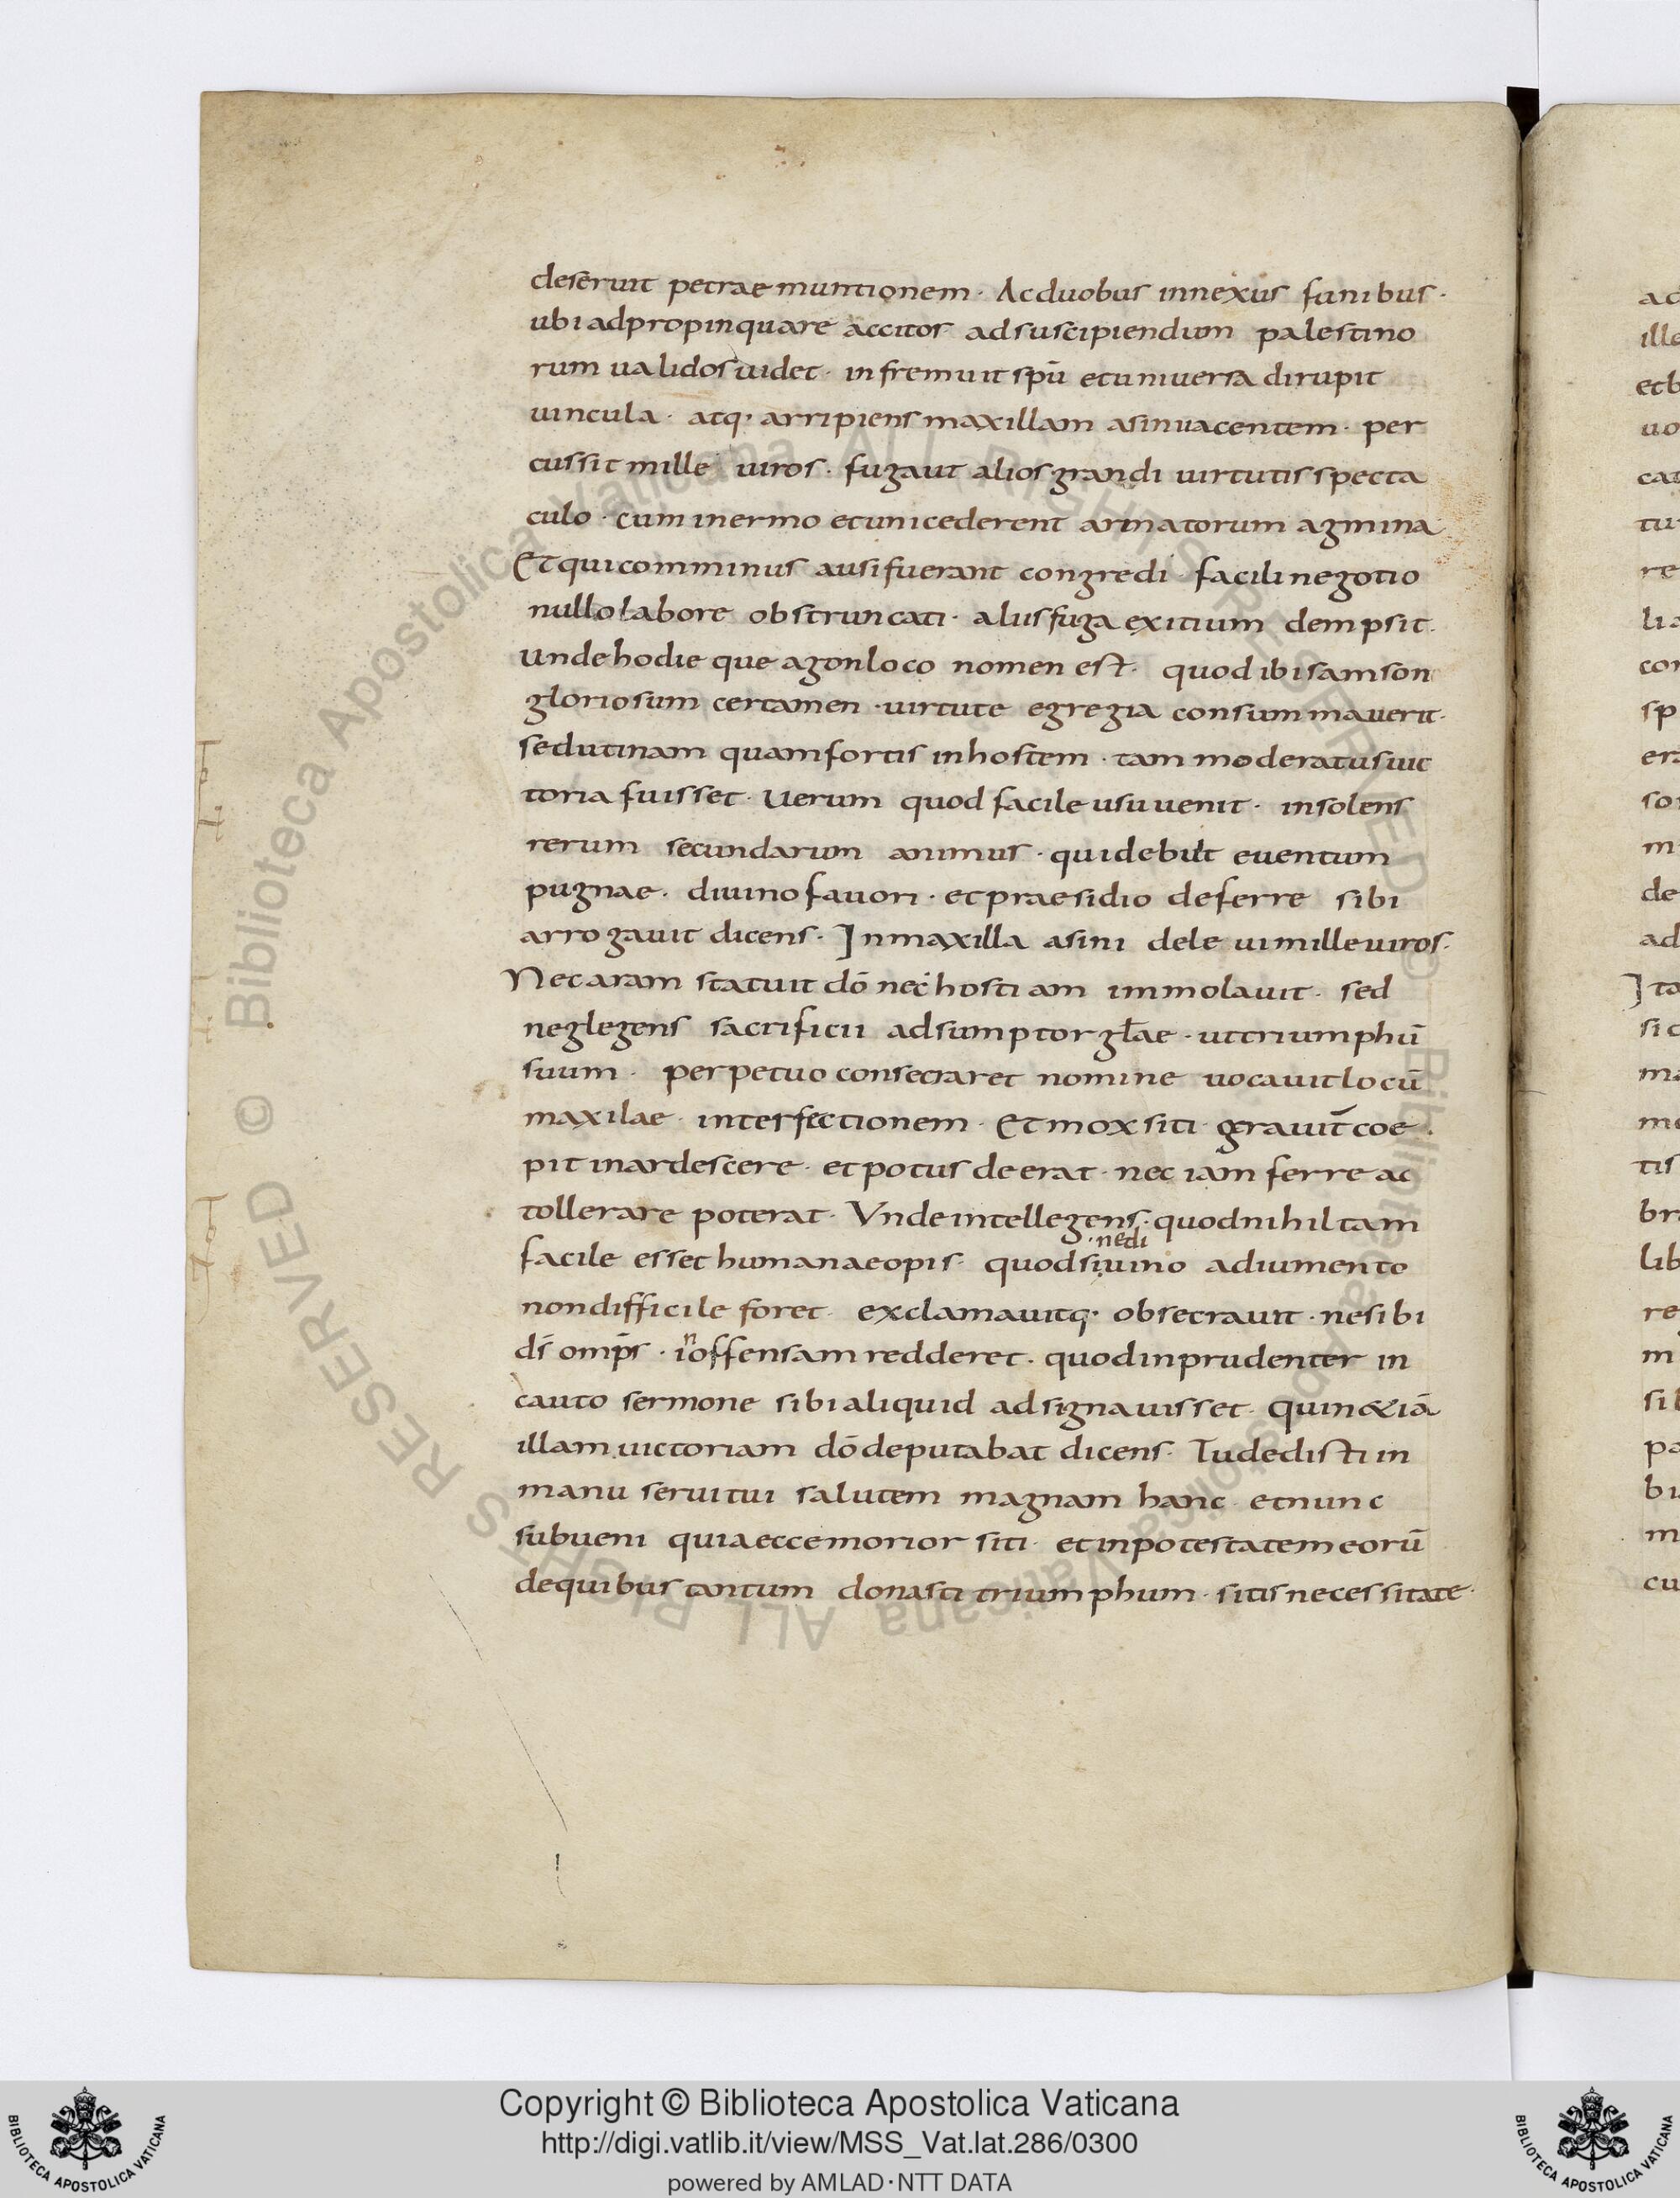 deseruit petrae munitionem· Ac duobus innexus funibus·
ubi adpropinquare accitos ad suscipiendum palestino
rum ualidos uidet· infremuit spū et uniuersa dirupit
uincula· atq· arripiens maxillam asini iacentem· per
cussit mille uiros· fugauit alios grandi uirtutis specta
culo· cum inermo et uni cederent armatorum agmina
Et qui comminus ausi fuerant congredi· facili negotio
nullo labore obstruncati· aliis fuga exitium dempsit·
unde hodieque agon loco nomen est· quod ibi samson
gloriosum certamen· uirtute egregia consummauerit·
sed utinam quam fortis in hostem· tam moderatus uic
toria fuisset· Uerum quod facile usu uenit· insolens
rerum secundarum animus· qui debuit euentum
pugnae· diuino fauori· et praesidio deferre sibi
arrogauit dicens· In maxilla asini deleui mille uiros·
Nec aram statuit dō nec hostiam immolauit· sed
neglegens sacrificii adsumptor gl̄ae· ut triumphū
suum· perpetuo consecraret nomine uocauit locū
maxilae· interfectionem· Et mox siti grauit̄ coe
pit inardescere· et potus deerat· nec iam ferre ac
tollerare poterat· Vnde intellegens· quod nihil tam
facile esset humanae opis· quod si·nediuino adiumento
non difficile foret· exclamauitq· obsecrauit· ne sibi
ds̄ omps̄· in offensam redderet· quod inprudenter in
cauto sermone sibi aliquid adsignauisset· quin &iā
illam uictoriam dō deputabat dicens· Tu dedisti in
manu serui tui salutem magnam hanc· et nunc
subueni quia ecce morior siti· et in potestatem eorū
de quibus tantum donasti triumphum· sitis necessitate·
Copyright © Biblioteca Apostolica Vaticana
http://digi.vatlib.it/view/MSS_Vat.lat.286/0300
powered by AMLAD·NTT DATA